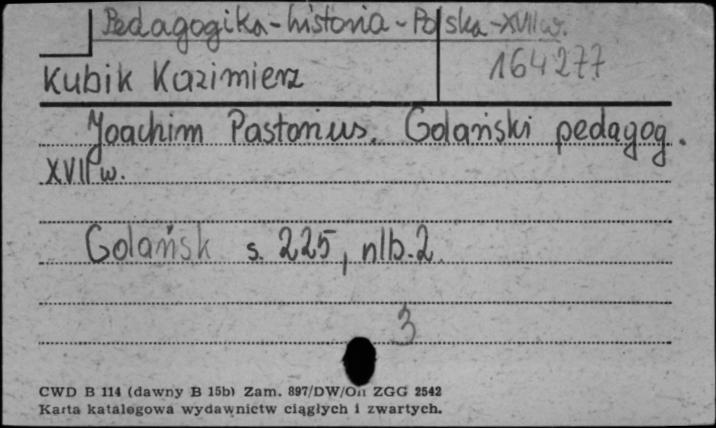 Pedagogika - historia - Polska - XVII w.
Kubik Kazimierz
164277
Joachim Pastorius. Gdański pedagog.
XVII w.
Gdańsk s. 225, nlb. 2
3
CWD B 114 (dawny B 15b) Zam. 897/DW/On ZGG 2542
Karta katalogowa wydawnictw ciągłych i zwartych.